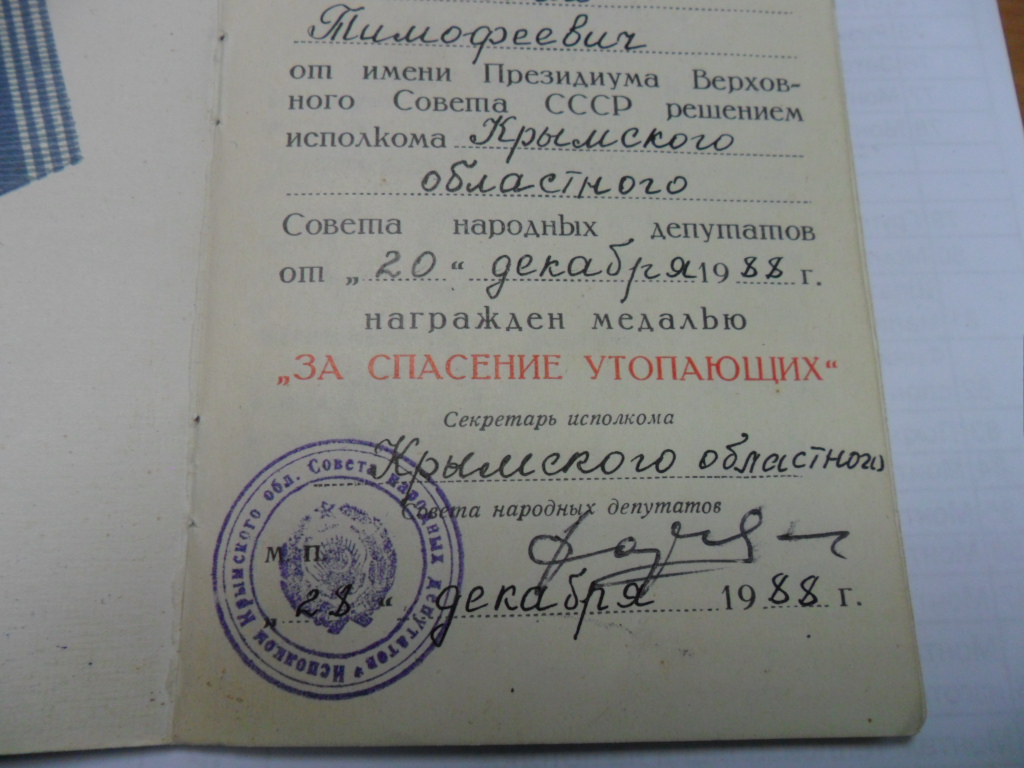 Тимофеевич
от имени Президиума Верхов-
ного Совета СССР решением
исполкома Крымского
областного
Совета народных депутатов
от „20“ декабря 1988 г.
награжден медалью
„ЗА СПАСЕНИЕ УТОПАЮЩИХ“
Секретарь исполкома
Крымского областного
Совета народных депутатов
М. П.
„28“ декабря 1988 г.
Исполком Крымского обл. Совета народных депутатов *